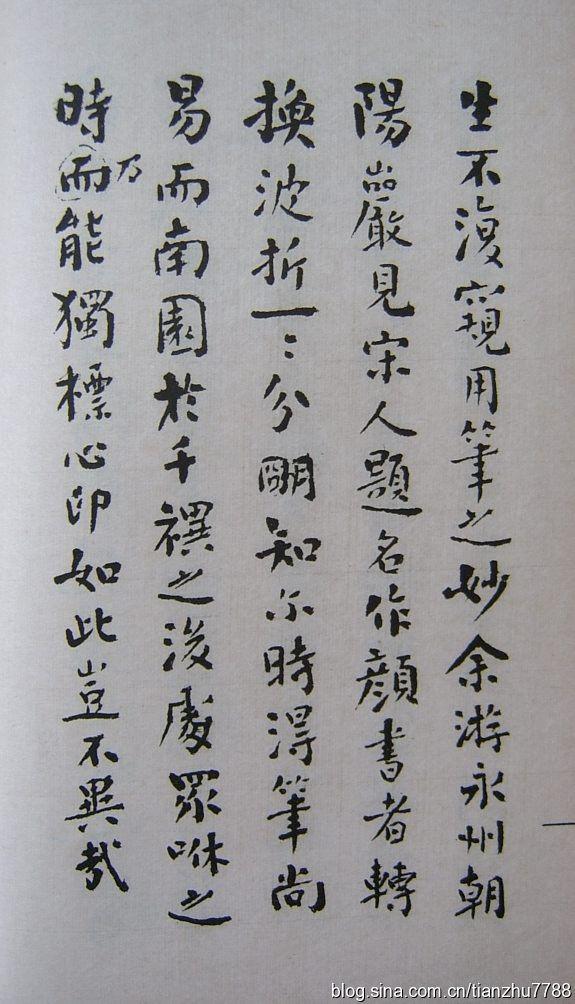 坐不復窺用筆之妙余游永州朝
陽巖見宋人題名作顏書者轉
換波折一〻分明知尒時得筆尚
易而南園於千禩之後處眾咻之
時而乃能獨標心印如此豈不異哉
blog.sina.com.cn/tianzhu7788